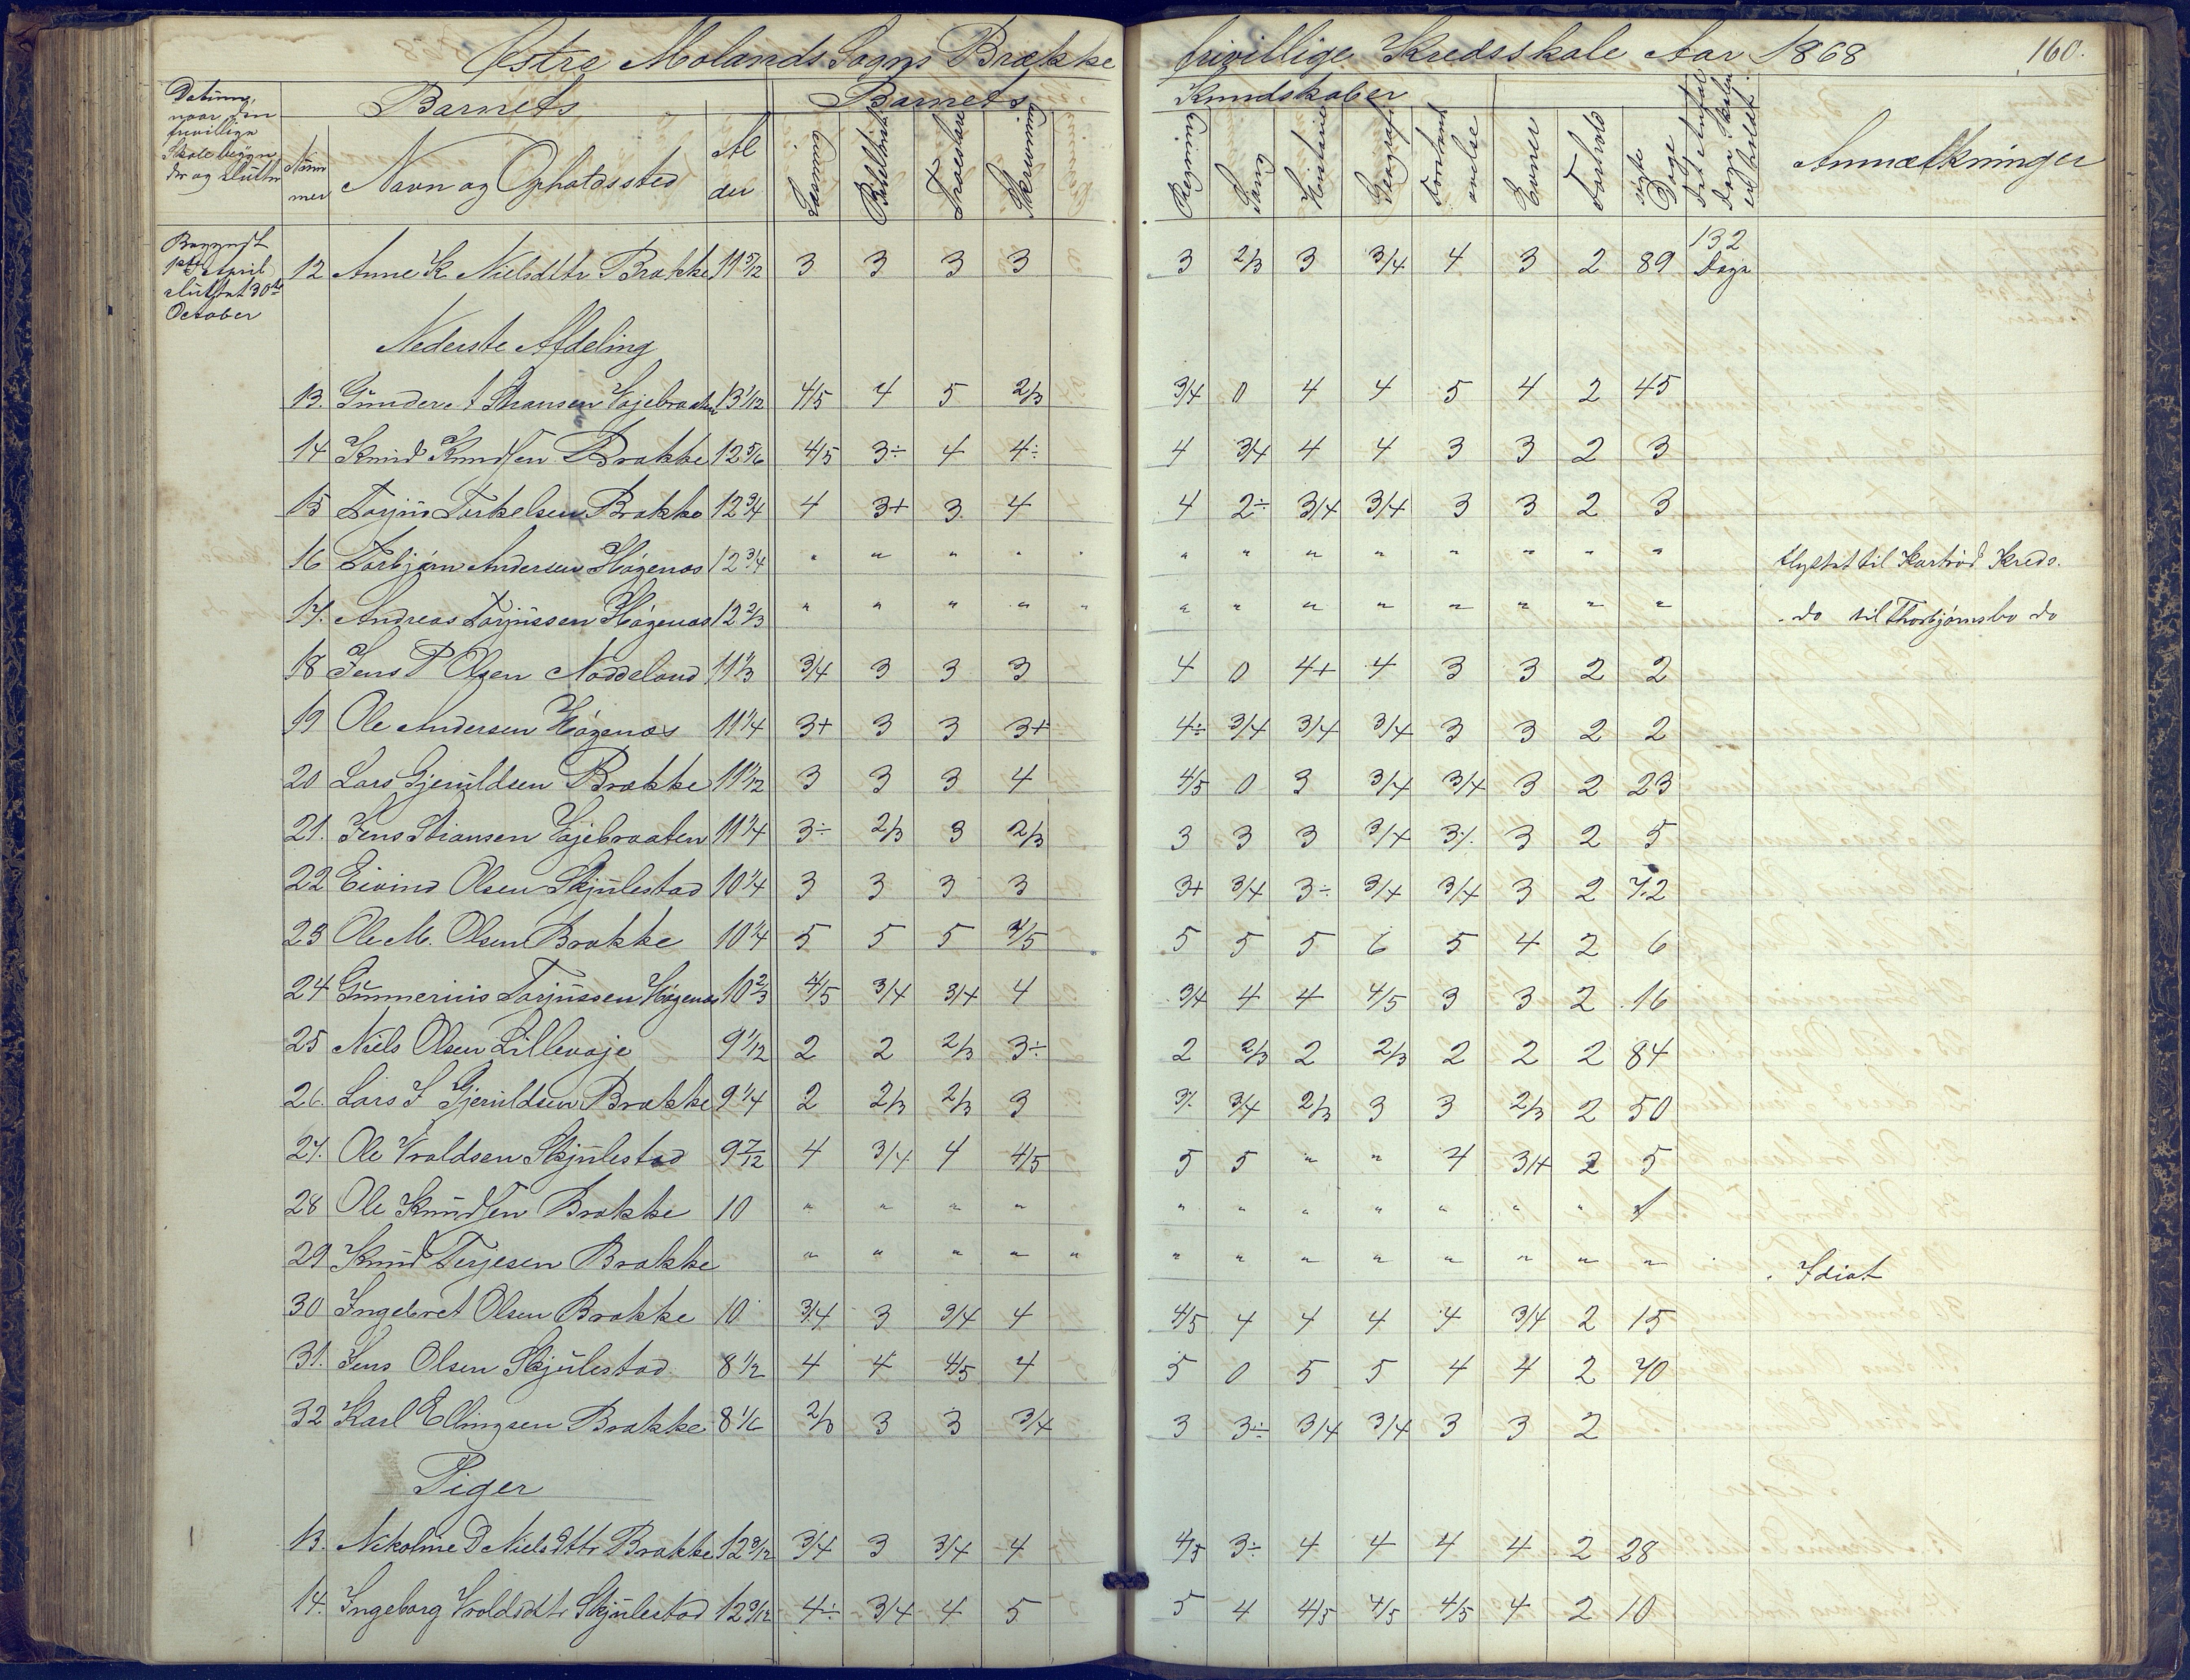 Østre Molands Sogns Brække frivillige Kredsskole Aar 1868 160.
Datum, naar den frivillige Skole begynder og slutter
Barnets
Barnets Kundskaber
Nummer Navn og Opholdssted Alder Læsning Bibelhist Troeslære Skrivning Regning Sang Historie Geografi Forstands øvelse Evner Forhold søgte Dage Det Antal Dage Skolen er holdt Anmærkninger
Begyndt 1ste April sluttet 30te October
12 Anne K Nielsdttr Brække 11 5/12 3 3 3 3 3 2/3 3 3/4 4 3 2 89 132 Dage
Nederste Afdeling
13. Gunder Stiansen Vojebraaten 13 1/12 4/5 4 5 2/3 3/4 0 4 4 5 4 2 45
14 Knud Knudsen Brække 12 5/6 4/5 3÷ 4 4÷ 4 3/4 4 4 3 3 2 3
15 Torjus Torkelsen Brække 12 3/4 4 3+ 3 4 4 2÷ 3/4 3/4 3 3 2 3
16 Torbjørn Andersen Høgenæs 12 3/4 " " " " " " " " " " " " flyttet til Kartrød Kreds.
17. Andreas Torjussen Høgenæs 12 2/3 " " " " " " " " " " " " " do til Thorbjørnsbo do
18 Jens P Olsen Næddeland 11 1/3 3/4 3 3 3 4 0 4+ 4 3 3 2 2
19 Ole Andersen Høgenæs 11 1/4 3+ 3 3 3+ 4÷ 3/4 3/4 3/4 3 3 2 2
20 Lars Gjeruldsen Brække 11 1/12 3 3 3 4 4/5 0 3 3/4 3/4 3 2 23
21. Jens Stiansen Vojebraaten 11 1/4 3÷ 2/3 3 2/3 3 3 3 3/4 3÷ 3 2 5
22 Eivind Olsen Skjulestad 10 1/4 3 3 3 3 3+ 3/4 3÷ 3/4 3/4 3 2 72
23 Ole M. Olsen Brække 10 1/4 5 5 5 4/5 5 5 5 6 5 4 2 6
24 Gunnerius Torjussen Høgenæs 10 2/3 4/5 3/4 3/4 4 3/4 4 4 4/5 3 3 2 16
25 Niels Olsen Lillevoje 9 1/12 2 2 2/3 3÷ 2 2/3 2 2/3 2 2 2 84
26. Lars J Gjeruldsen Brække 9 1/4 2 2/3 2/3 3 3÷ 3/4 2/3 3 3 2/3 2 50
27. Ole Vroldsen Skjulestad 9 7/12 4 3/4 4 4/5 5 5 " " 4 3/4 2 5
28 Ole Knudsen Brække 10 " " " " " " " " " " "
29 Knud Terjesen Brække " " " " " " " " " " " " " Idiot
30 Ingebret Olsen Brække 10 3/4 3 3/4 4 4/5 4 4 4 4 3/4 2 15
31. Jens Olsen Skjulestad 8 1/2 4 4 4/5 4 5 0 5 5 4 4 2 40
32 Karl Ellingsen Brække 8 1/6 2/3 3 3 3/4 3 3÷ 3/4 3/4 3 3 2
Piger
13. Nikoline D Nielsdttr Brække 12 3/12 3/4 3 3/4 4 4/5 3÷ 4 4 4 4 2 28
14. Ingeborg Vroldsdttr Skjulestad 12 3/12 4÷ 3/4 4 5 5 4 4/5 4/5 4/5 4 2 10